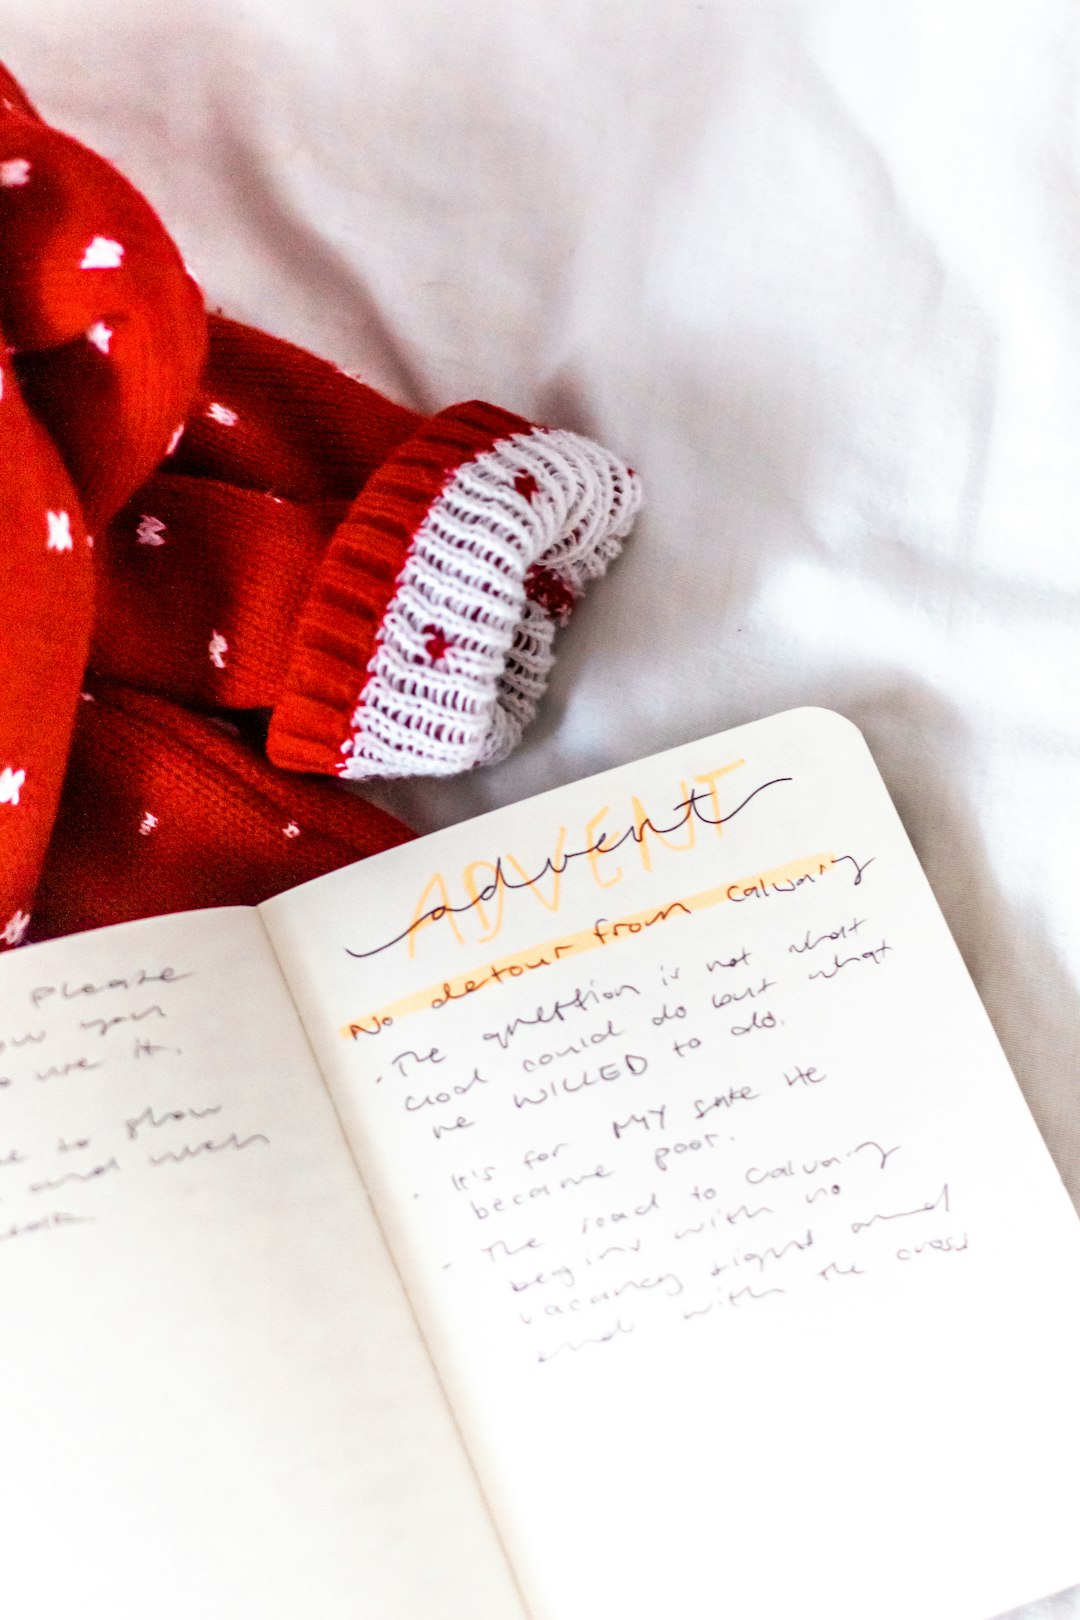 Please
your
use it.
to show
and when
ADVENT
advent
No detour from Calvary
. The question is not what
God could do but what
He WILLED to do.
. It's for MY sake He
became poor.
. The road to Calvary
begins with no
vacancy signs and
ends with the cross